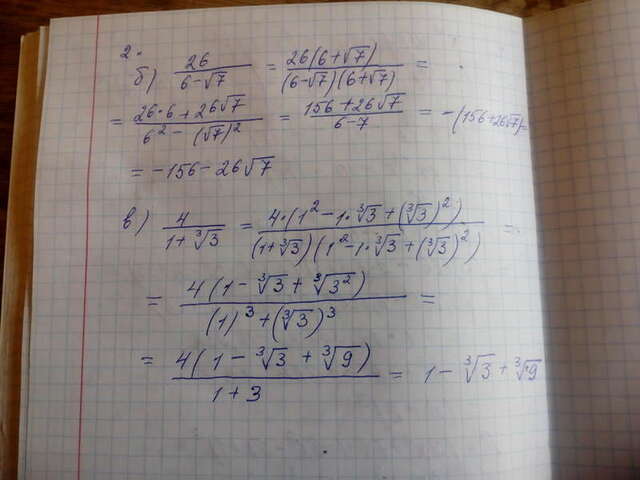 2.
б) 26/(6-√7) = 26(6+√7)/((6-√7)(6+√7)) =
= (26·6+26√7)/(6²-(√7)²) = (156+26√7)/(6-7) = -(156+26√7)=
= -156-26√7
в) 4/(1+∛3) = 4·(1²-1·∛3+(∛3)²)/((1+∛3)(1²-1·∛3+(∛3)²)) =
= 4(1-∛3+∛3²)/((1)³+(∛3)³) =
= 4(1-∛3+∛9)/(1+3) = 1-∛3+∛9